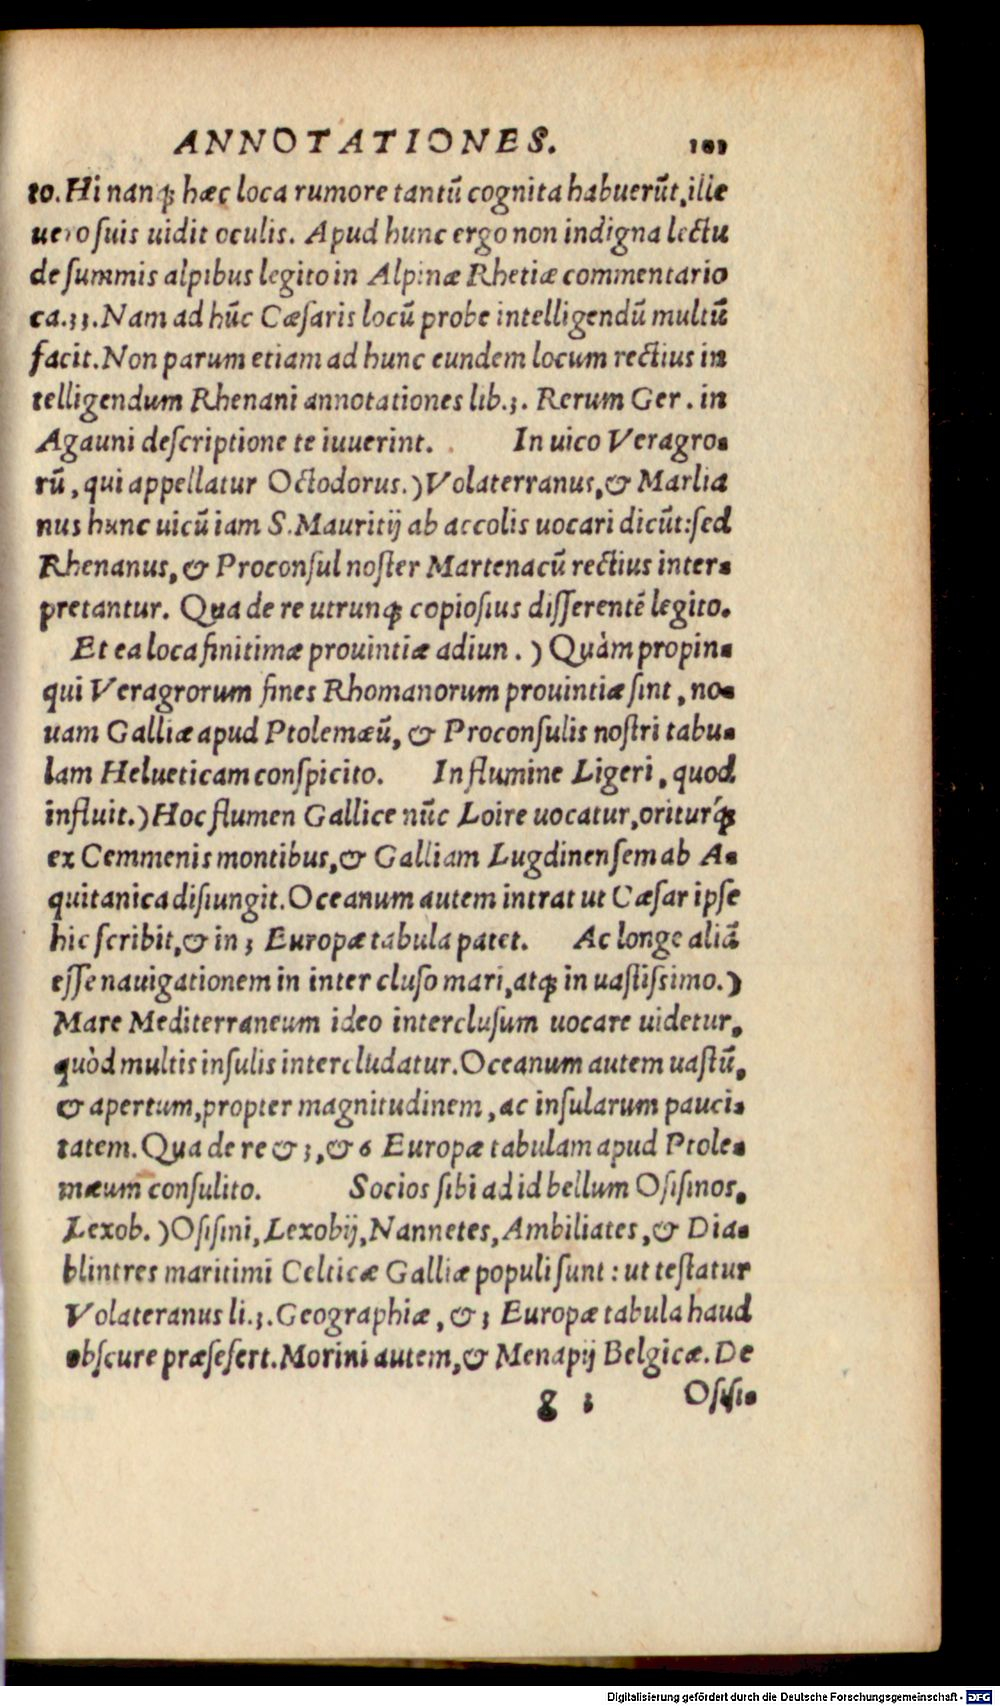 ANNOTATIONES. 101
to. Hi nanq̃ hæc loca rumore tantũ cognita habuerũt, ille
uero suis uidit oculis. Apud hunc ergo non indigna lectu
de summis alpibus legito in Alpinæ Rhetiæ commentario
ca.33. Nam ad hũc Cæsaris locũ probe intelligendũ multũ
facit. Non parum etiam ad hunc eundem locum rectius in
telligendum Rhenani annotationes lib.3. Rerum Ger. in
Agauni descriptione te iuuerint. In uico Veragro-
rũ, qui appellatur Octodorus.) Volaterranus, & Marlia
nus hunc uicũ iam S. Mauritij ab accolis uocari dicũt: sed
Rhenanus, & Proconsul noster Martenacũ rectius inter-
pretantur. Qua de re utrunq̃ copiosius disserentẽ legito.
Et ea loca finitimæ prouintiæ adiun.) Quàm propin-
qui Veragrorum fines Rhomanorum prouintiæ sint, no-
uam Galliæ apud Ptolemæũ, & Proconsulis nostri tabu-
lam Helueticam conspicito. In flumine Ligeri, quod
influit.) Hoc flumen Gallice nũc Loire uocatur, oriturq́;
ex Cemmenis montibus, & Galliam Lugdinensem ab A-
quitanica disiungit. Oceanum autem intrat ut Cæsar ipse
hic scribit, & in 3 Europæ tabula patet. Ac longe aliã
esse nauigationem in inter cluso mari, atq̃ in uastissimo.)
Mare Mediterraneum ideo interclusum uocare uidetur,
quòd multis insulis intercludatur. Oceanum autem uastũ,
& apertum, propter magnitudinem, ac insularum pauci-
tatem. Qua de re & 3, & 6 Europæ tabulam apud Ptole-
mæum consulito. Socios sibi ad id bellum Osisinos,
Lexob.) Osisini, Lexobij, Nannetes, Ambiliates, & Dia-
blintres maritimi Celticæ Galliæ populi sunt: ut testatur
Volateranus li.3. Geographiæ, & 3 Europæ tabula haud
obscure præsefert. Morini autem, & Menapij Belgicæ. De
g 3 Osisi-
Digitalisierung gefördert durch die Deutsche Forschungsgemeinschaft - DFG